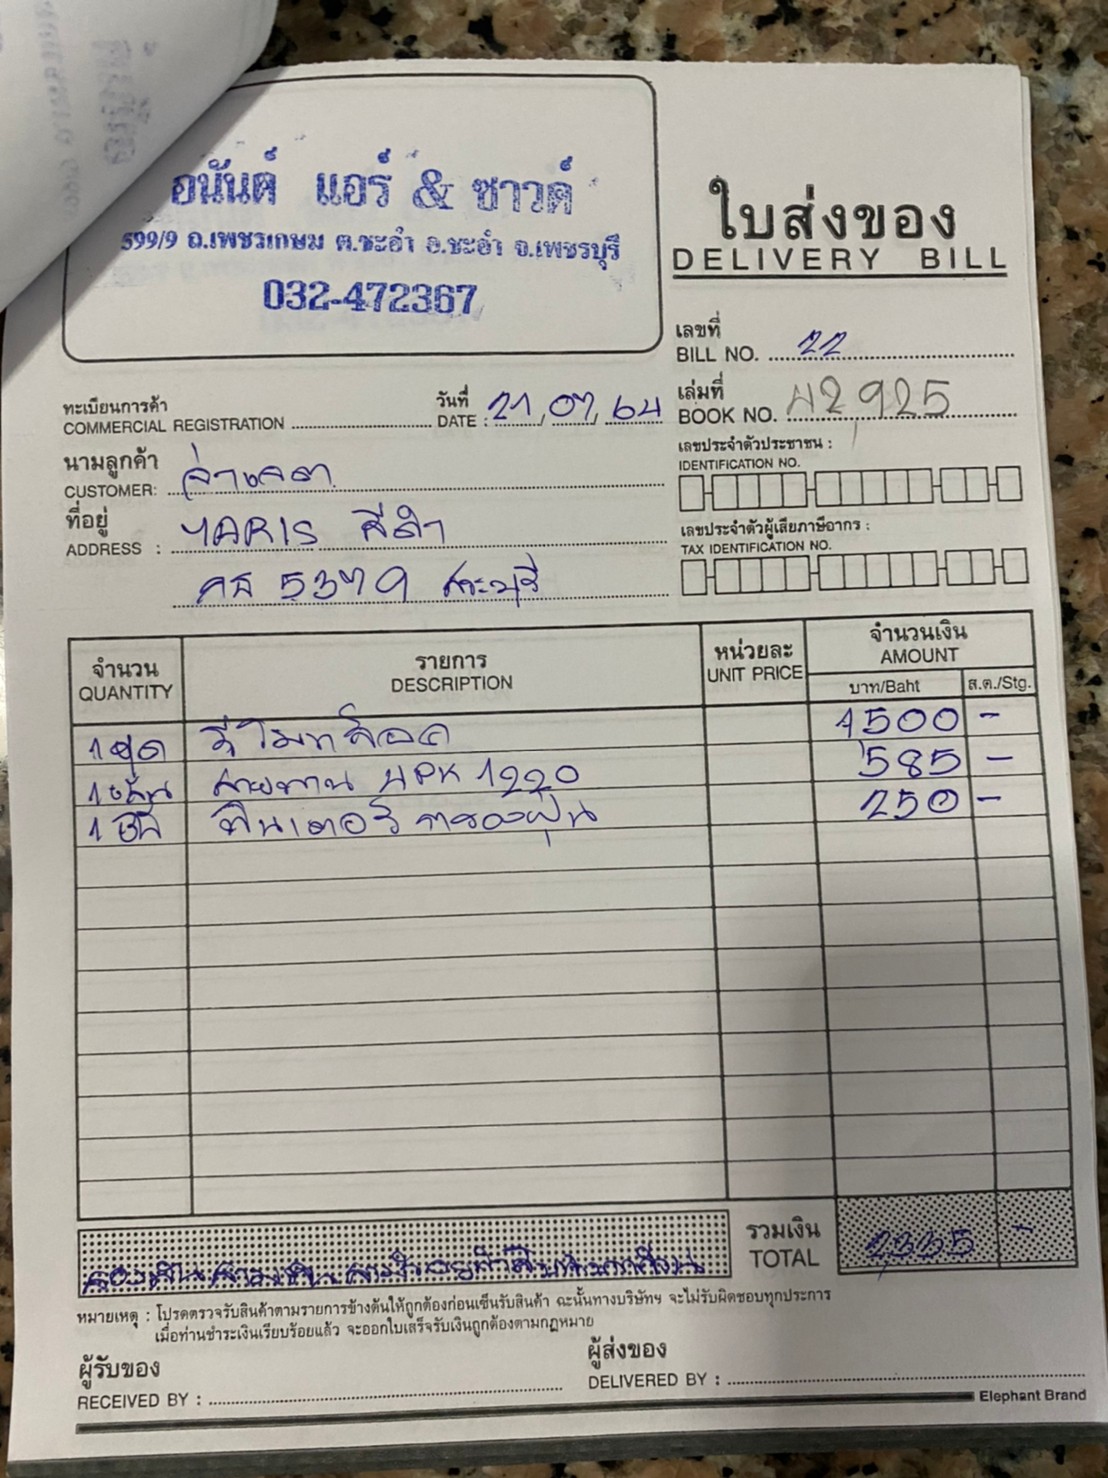 อนันต์ แอร์ & ซาวด์
599/9 ถ.เพชรเกษม ต.ชะอำ อ.ชะอำ จ.เพชรบุรี
032-472367
ใบส่งของ
DELIVERY BILL
เลขที่
BILL NO. 22
ทะเบียนการค้า
COMMERCIAL REGISTRATION
วันที่
DATE : 21/07/64
เล่มที่
BOOK NO. 42925
เลขประจำตัวประชาชน :
IDENTIFICATION NO.
นามลูกค้า
CUSTOMER:
ที่อยู่
ADDRESS : YARIS สีดำ
5379 สระบุรี
เลขประจำตัวผู้เสียภาษีอากร :
TAX IDENTIFICATION NO.
จำนวน
QUANTITY
รายการ
DESCRIPTION
หน่วยละ
UNIT PRICE
จำนวนเงิน
AMOUNT
บาท/Baht ส.ต./Stg.
1 ชุด รีโมทล็อค 1500 -
1 เส้น สายพาน 4PK 1220 585 -
1 ฟิลเตอร์ กรองฝุ่น 250 -
สองพันสามร้อยสามสิบห้าบาทถ้วน
รวมเงิน
TOTAL 2,335 -
หมายเหตุ : โปรดตรวจรับสินค้าตามรายการข้างต้นให้ถูกต้องก่อนเซ็นรับสินค้า ฉะนั้นทางบริษัทฯ จะไม่รับผิดชอบทุกประการ
เมื่อท่านชำระเงินเรียบร้อยแล้ว จะออกใบเสร็จรับเงินถูกต้องตามกฎหมาย
ผู้รับของ
RECEIVED BY :
ผู้ส่งของ
DELIVERED BY :
Elephant Brand